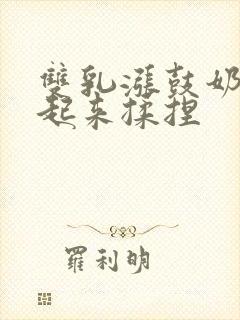 雙乳漲鼓奶
起來揉捏
羅利明